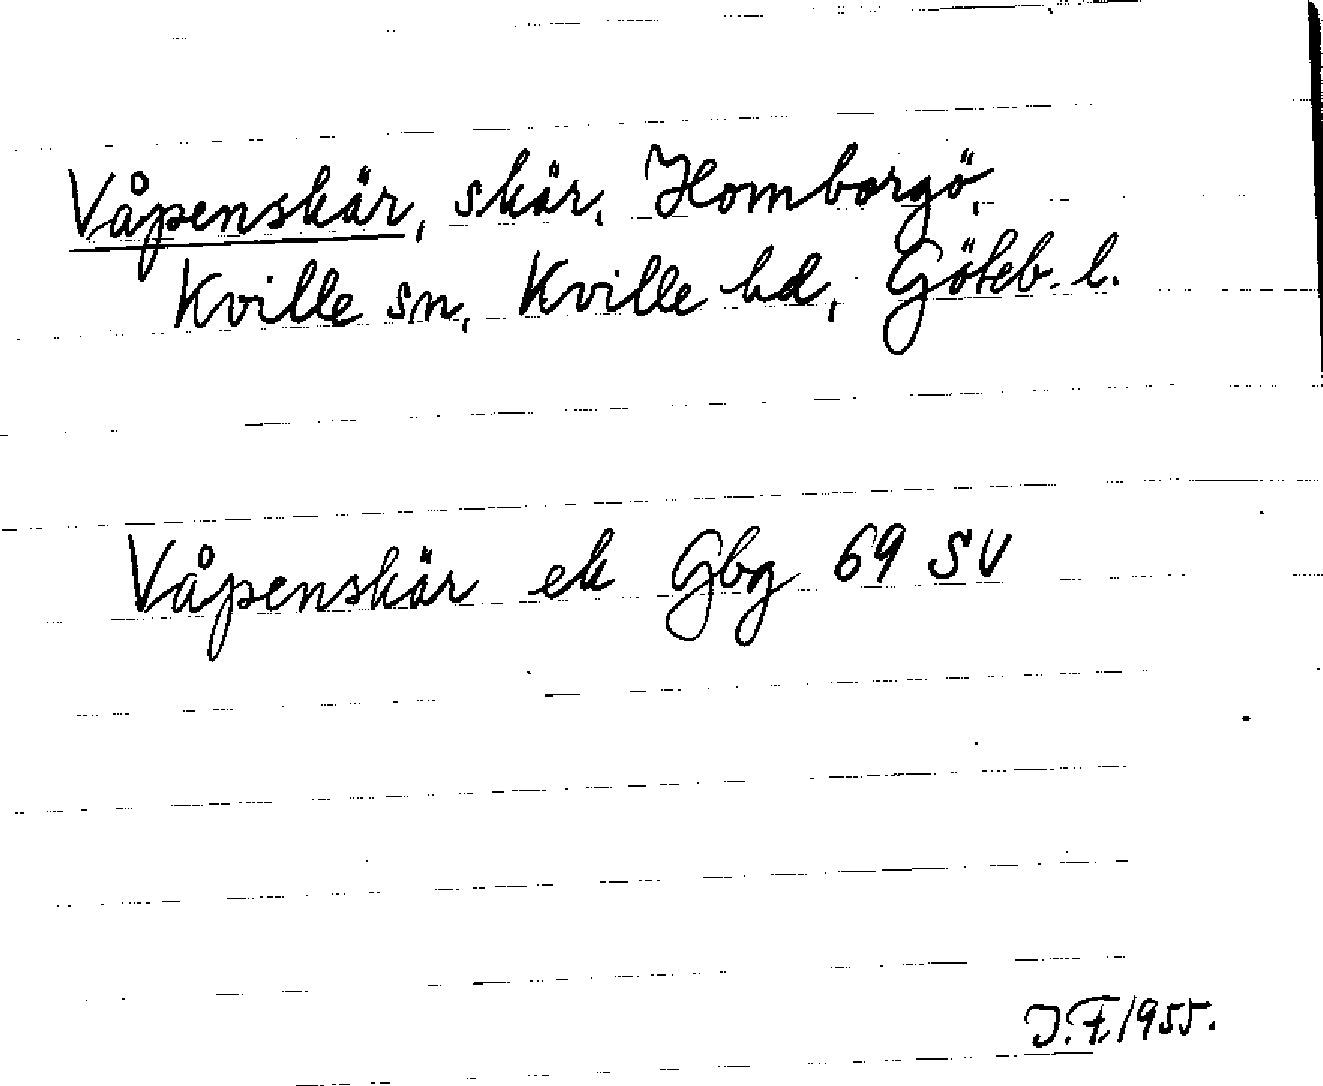 Våpenskär, skär, Homborgö,
Kville sn, Kville hd, Göteb. l.
Våpenskär ek Gbg 69 SV
J.F. 1955.